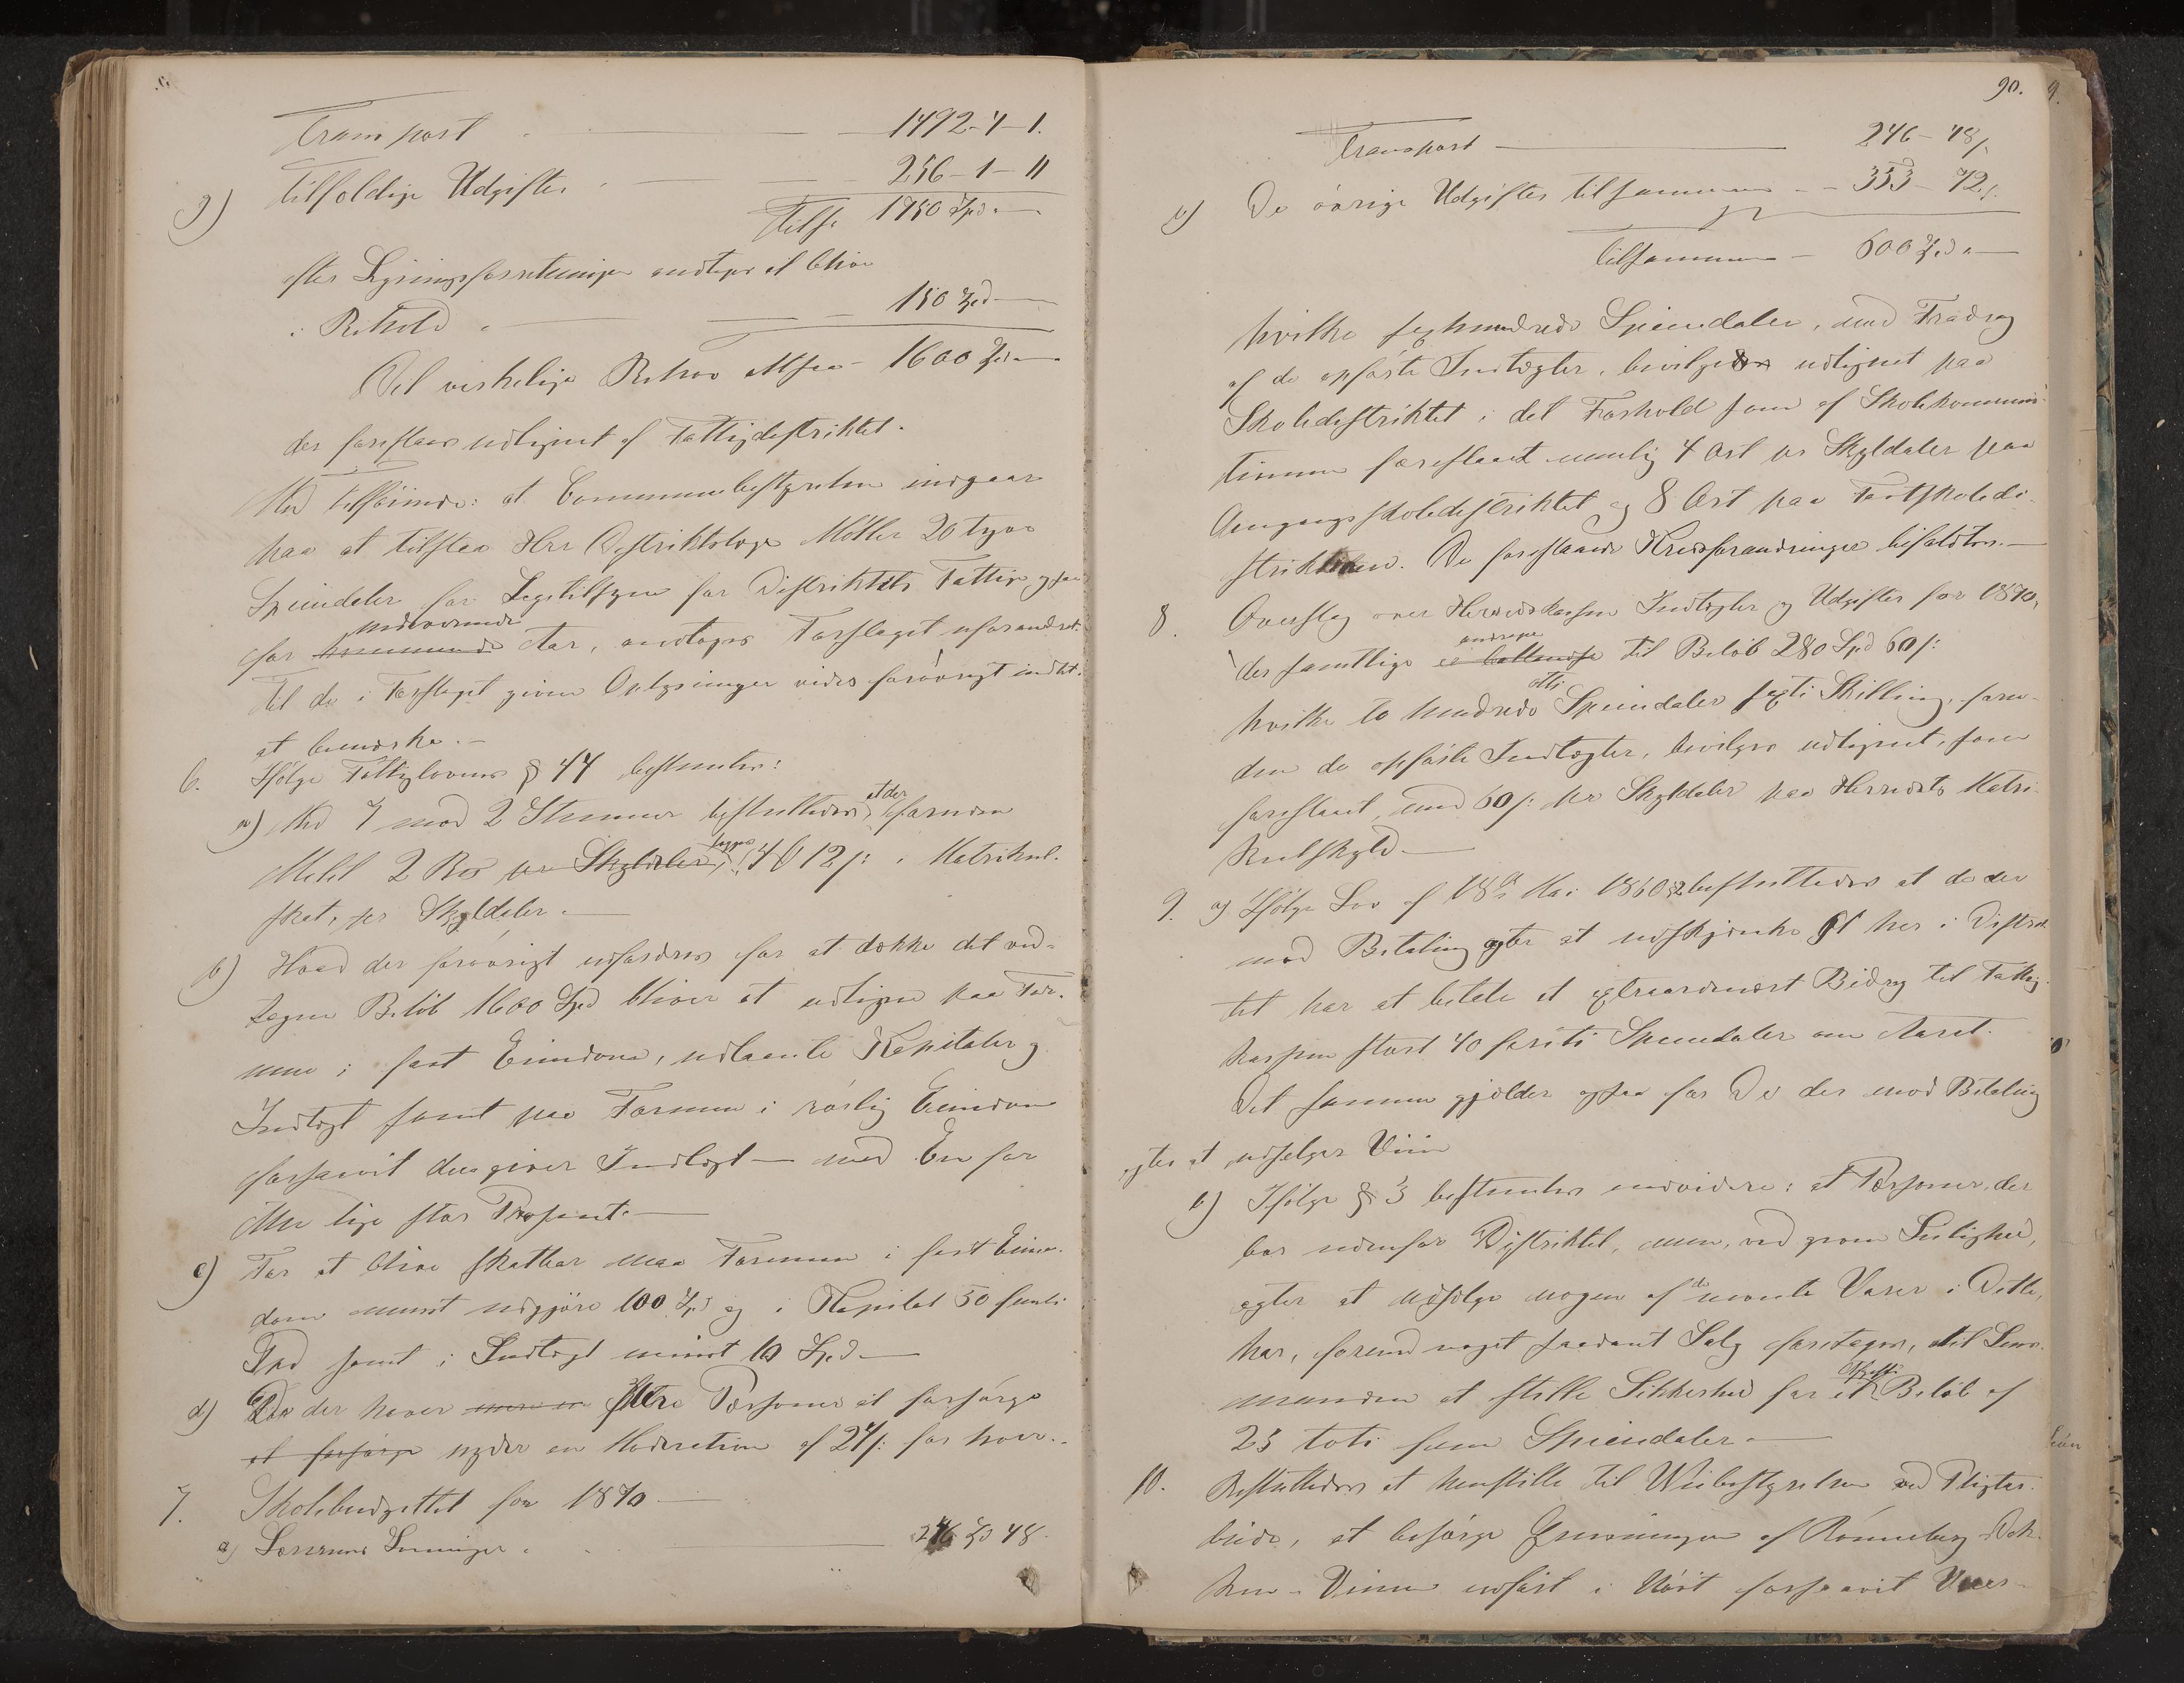 Transport 1492-4-1.
g) Tilfældige Udgifter 256-1-11
Tilss 1750 Spd.
efter Ligningsforretningen antages at blive
i Behold 150 Spd
Det virkelige Behov altsaa - 1600 Spd.
der foreslaaes udlignet af Fattigdistriktet.
Med Tilføiende: at Communebestyrelsen indgaar
paa at tilstaa Hrr Distriktslæge Møller 20 tyve
Speciedaler for Lægetilsyn for Distriktets Fattige ogsaa
for kommende nærværende Aar, antages Forslaget uforandret.
Til de i Forslaget givne Oplysninger vides forøvrigt intet
at bemærke.-
6. Ifølge Fattiglovens § 44 bestemtes:
a) Med 7 mod 2 Stemmer besluttedes, at der foruden
Melet 2 Bor pr Skyldaler, 12 s: i Matrikul-
skat, pr Skyldaler.
b) Hvad der forøvrigt udfordres for at dække det ved-
tagne Beløb 1600 Spd bliver at udligne paa For-
mue i fast Eiendom, udlaante Kapitaler og
Indtægt samt paa Formue i rørlig Eiendom
forsaavit den giver Indtægt - med En for
Alle lige stor Prosent.-
c) For at blive skatbar maa Formuen i fast Eien-
dom mindst udgjøre 100 Spd og i Kapital 50 femti
Spd samt i Indtægt mindst 10 Spd.-
d) Den der haver mere en flere Personer at forsørge
at forsørge nyder en Moderation af 24 s: for hver.-
7. Skolebudgettet for 1870-
a) Lærernes Lønninger. 246 Spd 48.
90.
Transport 246-48 s.
b) De øvrige Udgifter tilsammen -- 353-72 s.
Tilsammen - 600 Spd.-
hvilke sexhundrede Speciedaler, med Fradrag
af de opførte Indtægter, bevilges udlignet paa
Skoledistriktet i det Forhold som af Skolekommis-
sionen foreslaaet nemlig 4 Ort pr Skyldaler paa
Omgangsskoledistriktet og 8 Ort paa Fastskoledi-
strikterne. De foreslaaede Kredsforandringer bifaldtes.-
8. Overslag over Herredskassens Indtægter og Udgifter for 1870,
der samtlige andrage til Beløb 280 Spd 60 s:
hvilke to hundrede otti Speciedaler sexti Skilling, foru-
den de opførte Indtægter, bevilges udlignet, som
foreslaaet, med 60 s: pr Skyldaler paa Herredets Matri-
kulskyld.-
9. a) Ifølge Lov af 18de Mai 1860 § 2 besluttedes at de der
mod Betaling agter at udskjænke Øl her i Distrik-
tet har at betale et extraordinært Bidrag til Fattig-
kassen stort 40 førti Speciedaler om Aaret.
Det samme gjælder ogsaa for De der mod Betaling
agter at udsælger Viin
b) Ifølge § 3 bestemtes endvidere: at Personer, der
bor udenfor Distriktet, men, ved given Leilighed,
agter at udsælge nogen af de nævnte Varer i Dette,
har, førend noget saadant Salg foretages, til Lens-
manden at stille Sikkerhed for et Afgifts Beløb af
25 toti fem Speciedaler.-
10. Besluttedes at henstille til Veibestyrelsen ved Pligtar-
beide, at besørge Grusningen af Rønneberg-Bak-
ken - Veien udført i Høst forsaavit Veir-